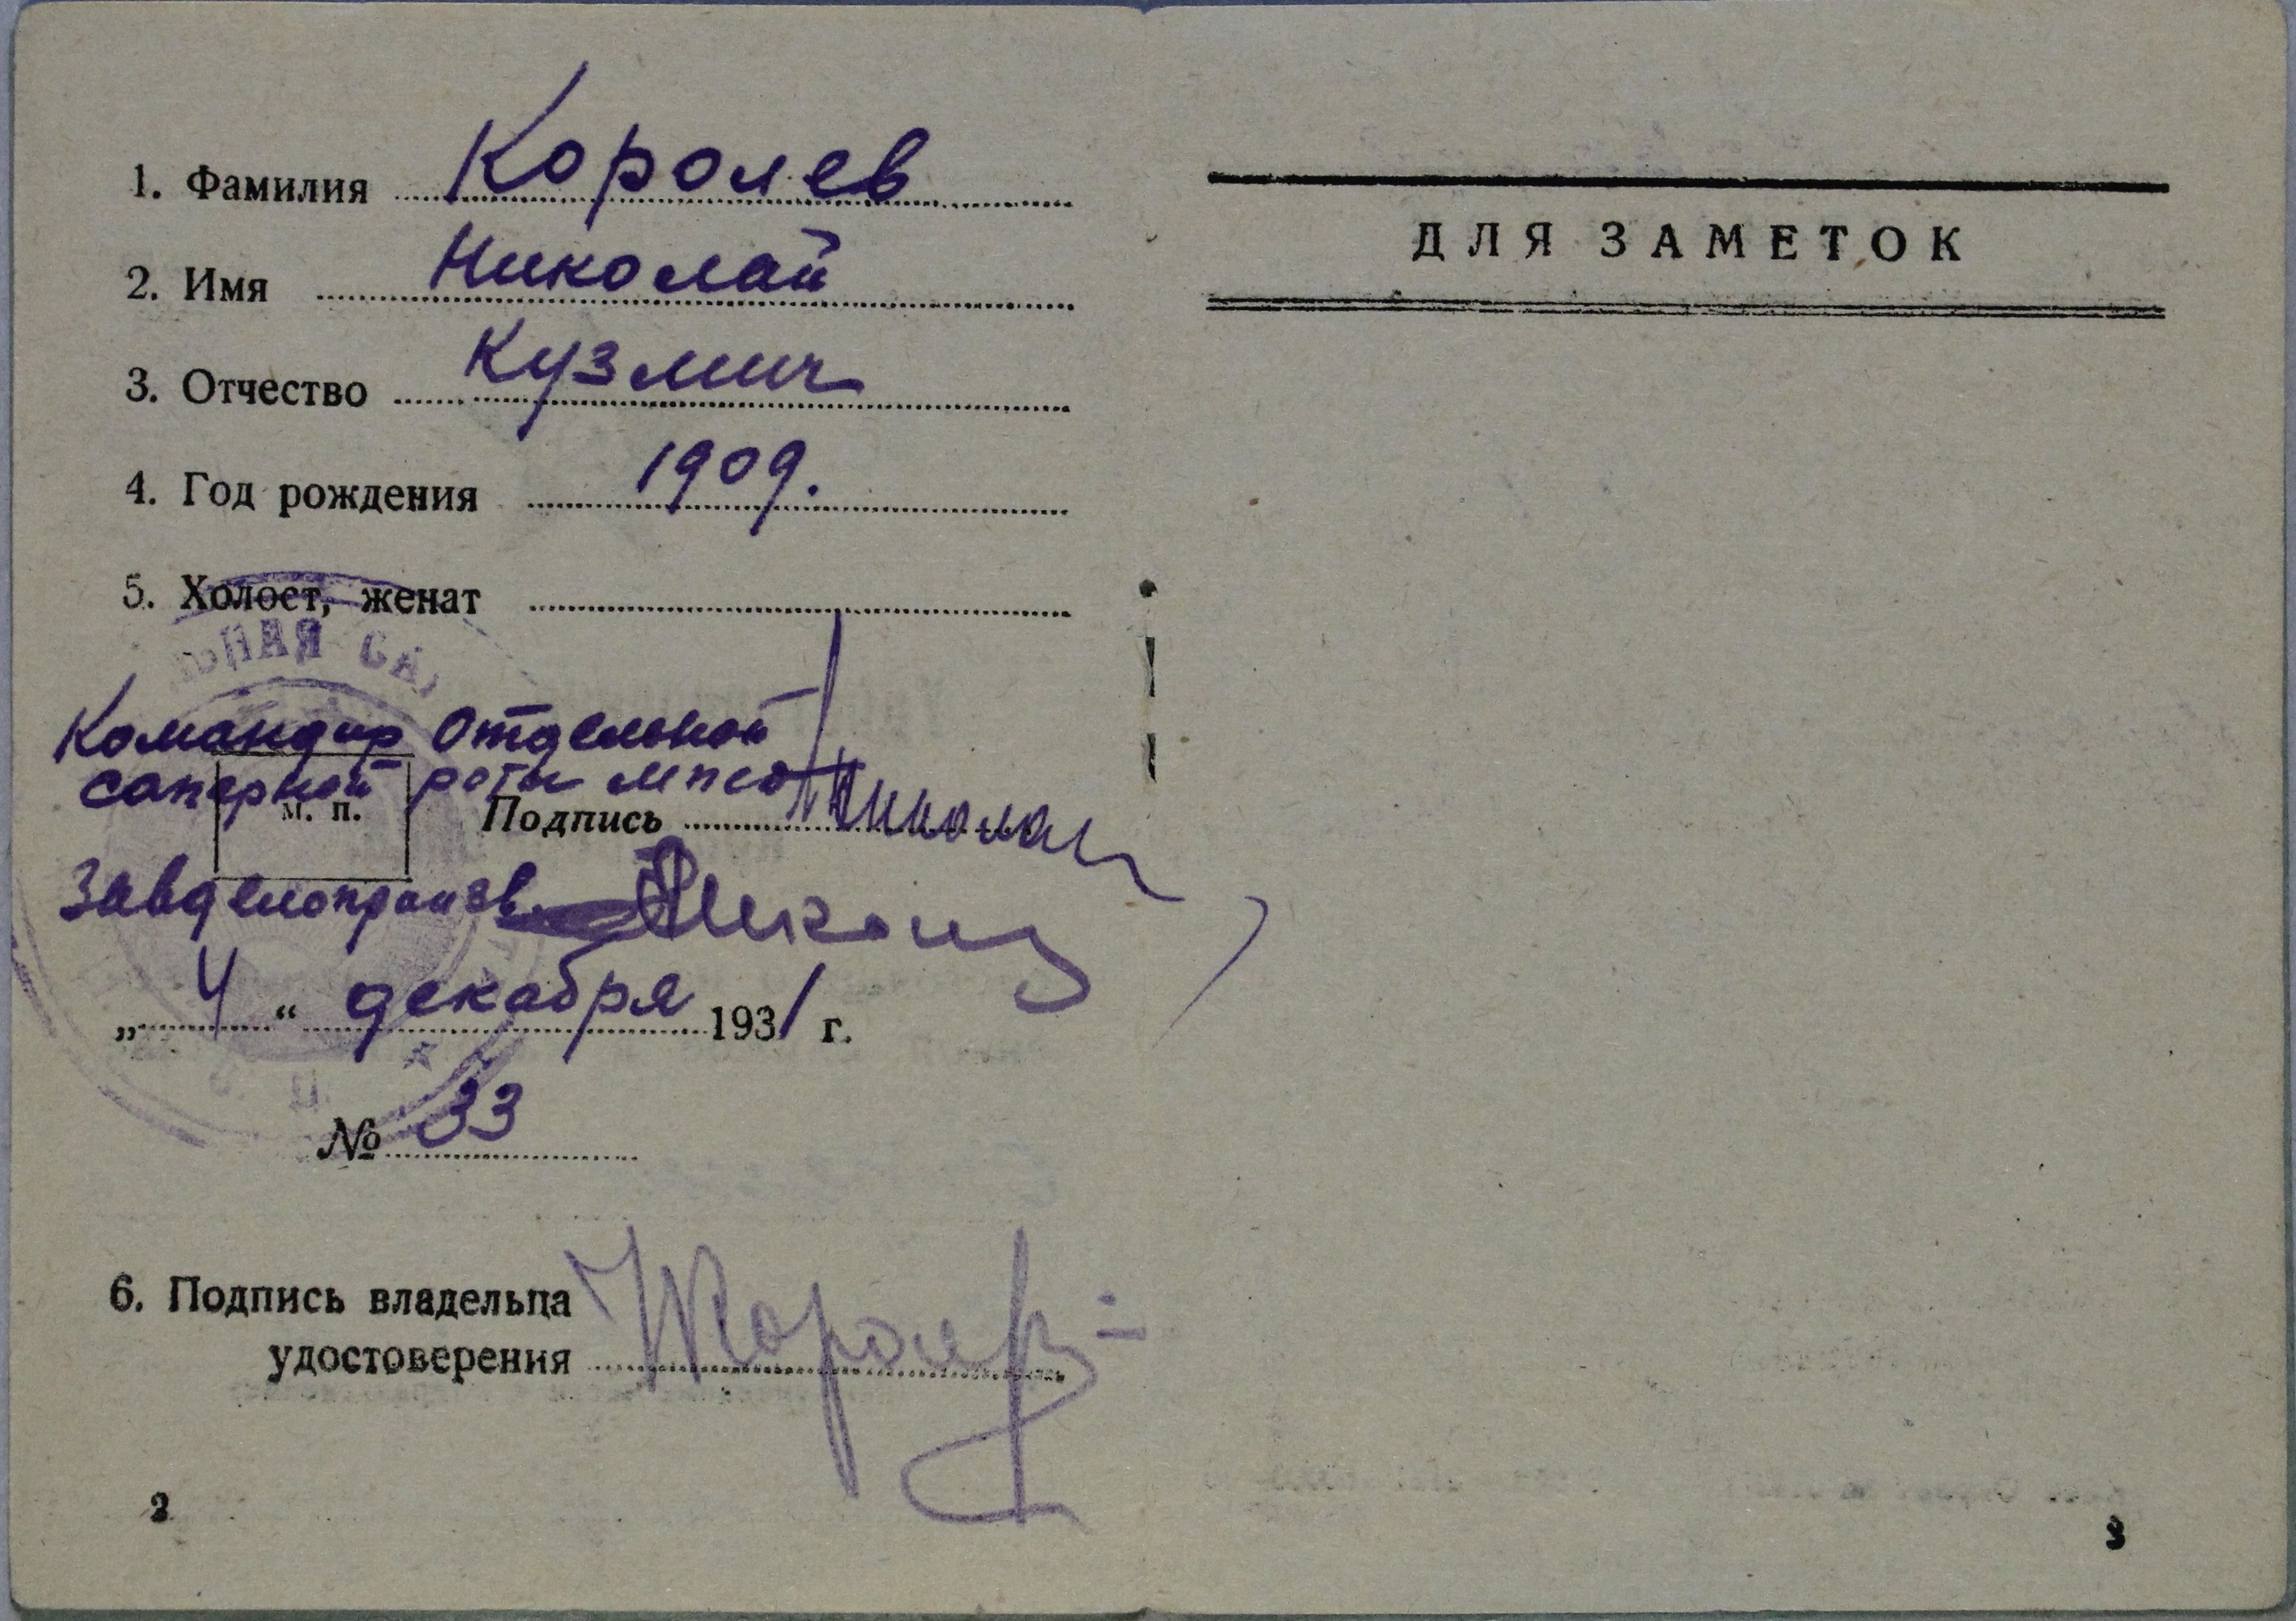 1. Фамилия Королев
2. Имя Николай
3. Отчество Кузмич
4. Год рождения 1909.
5. Холост, женат
ЬНАЯ СА
Командир Отдельной
саперной роты мпсд
м. п. Подпись
Завделопроизв.
„ 4 “ декабря 1931 г.
№ 33
6. Подпись владельца
удостоверения Королев
2
ДЛЯ ЗАМЕТОК
3